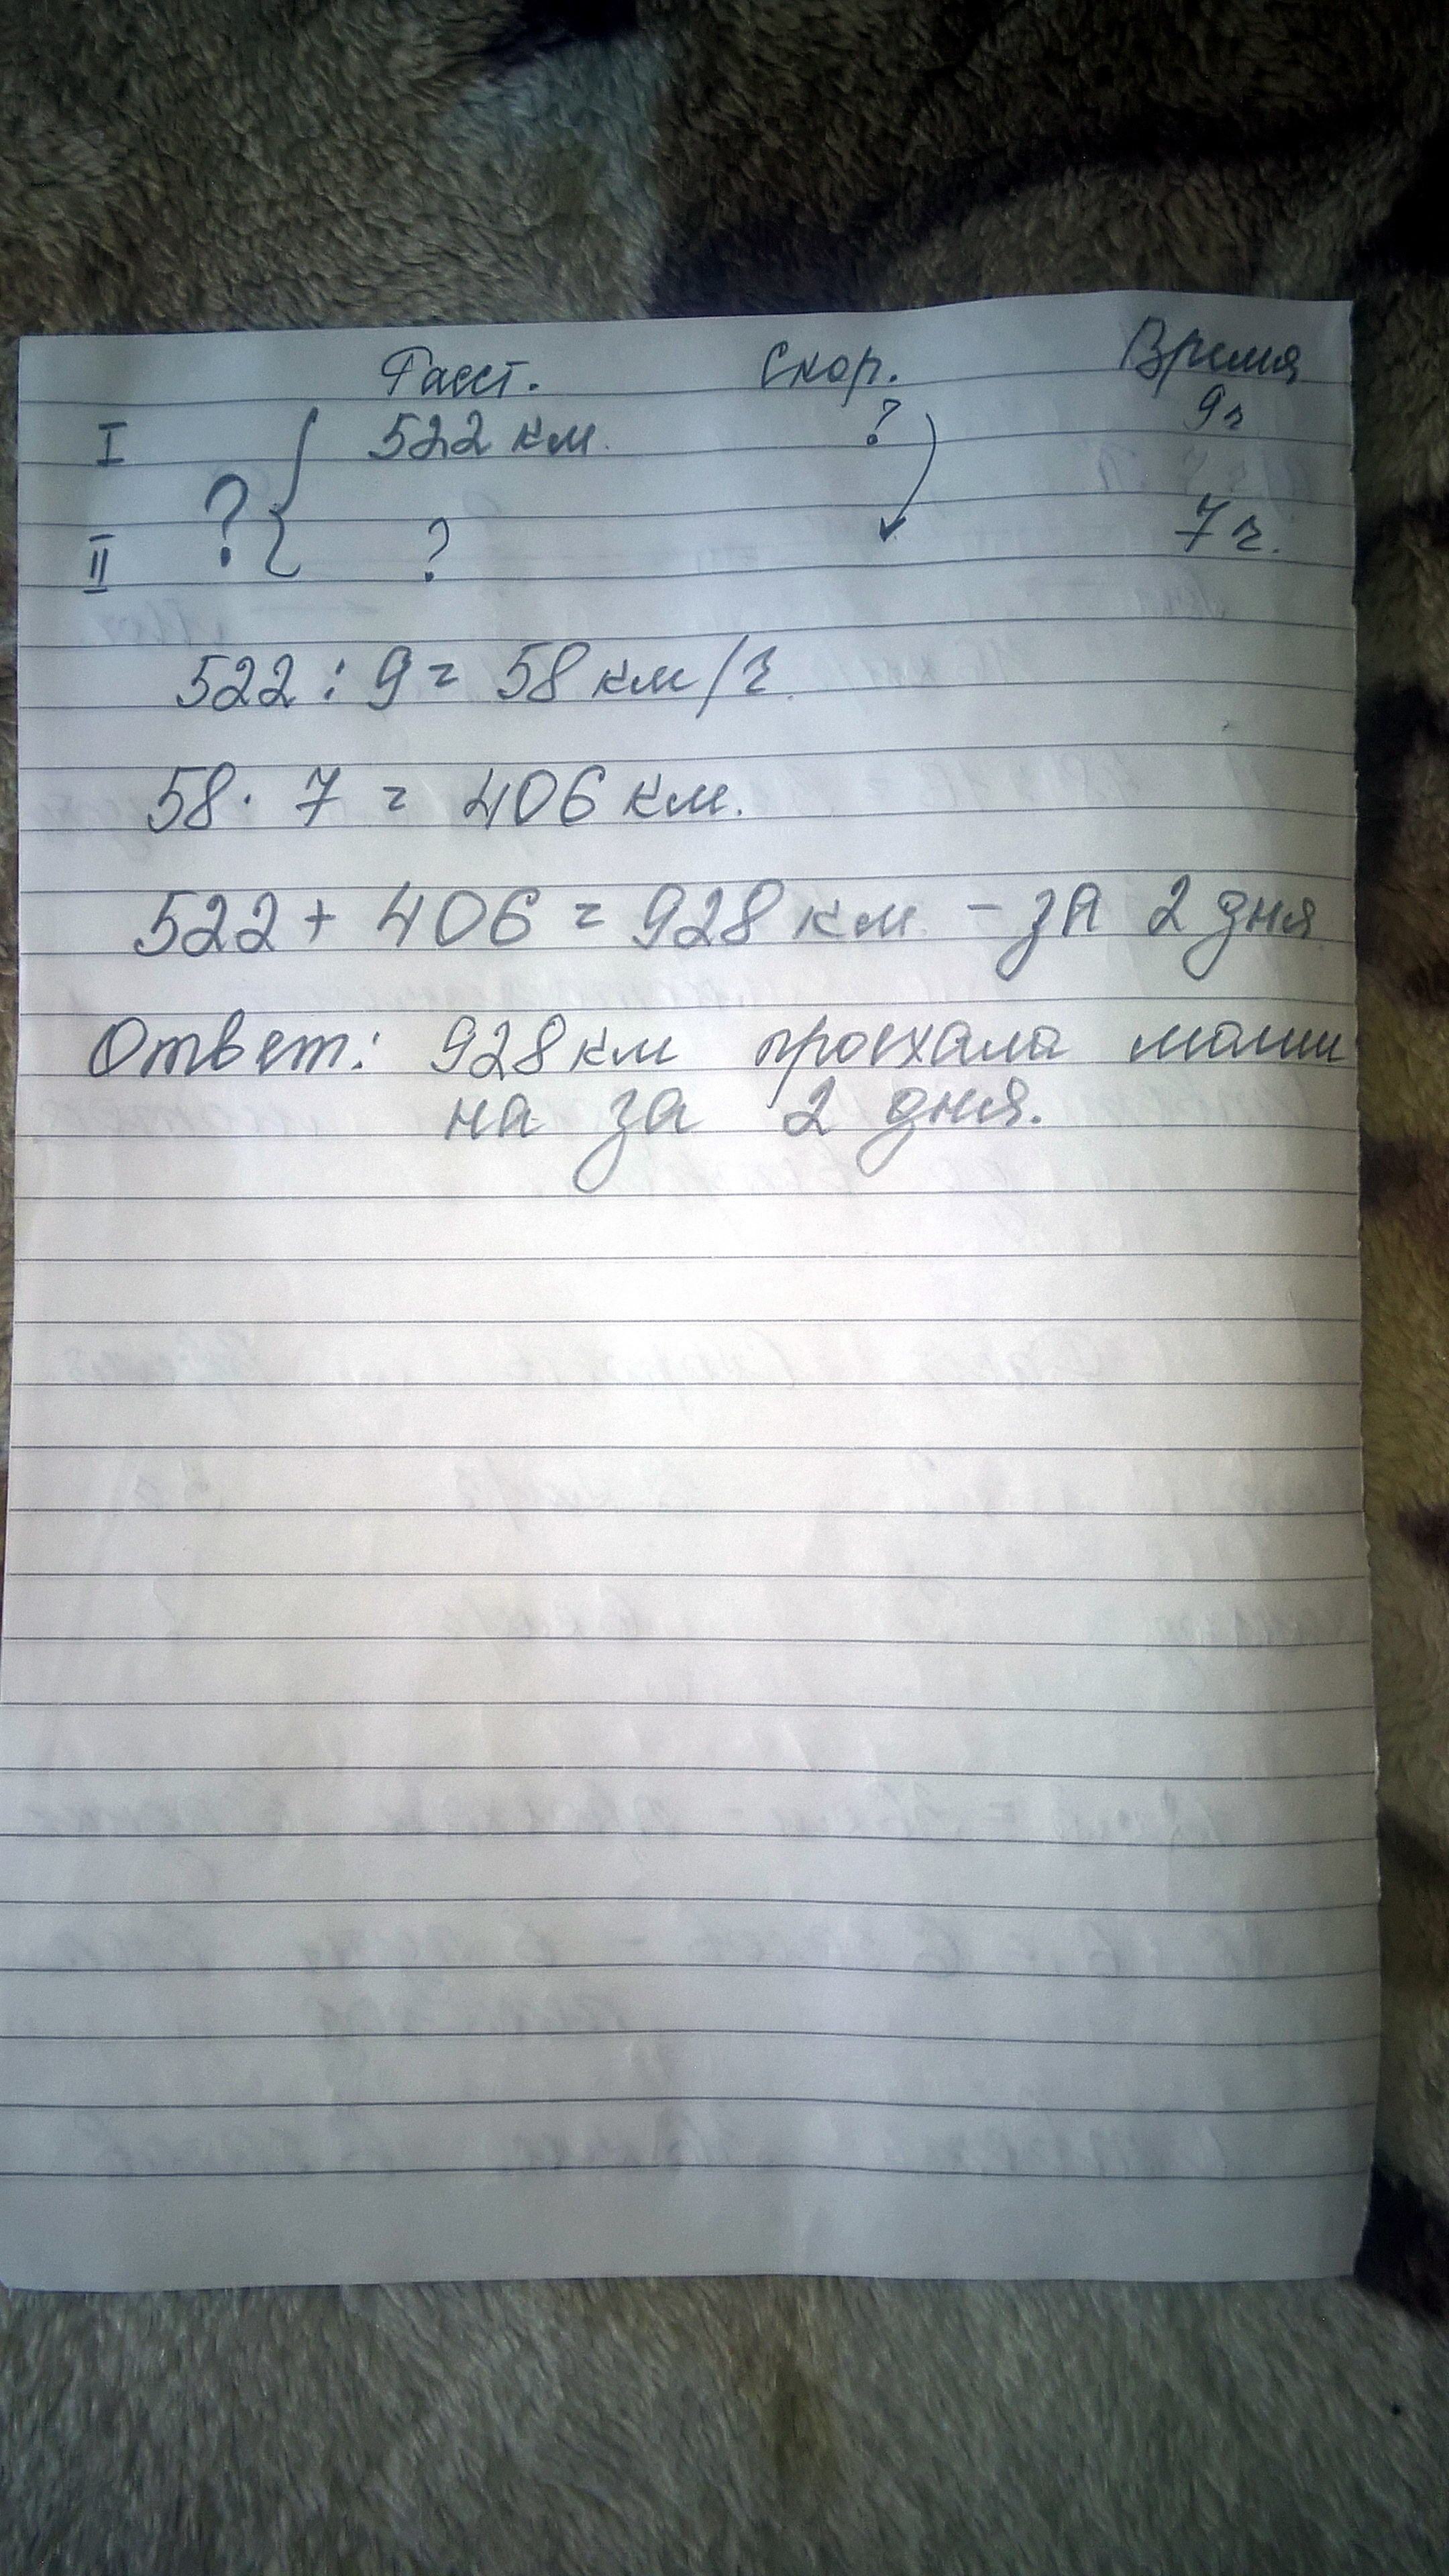 Расст. Скор. Время
I 522 км. ? 9ч
?
II ? 7 ч.
522 : 9 = 58 км/ч.
58 · 7 = 406 км.
522 + 406 = 928 км. - за 2 дня
Ответ: 928 км проехала маши
на за 2 дня.